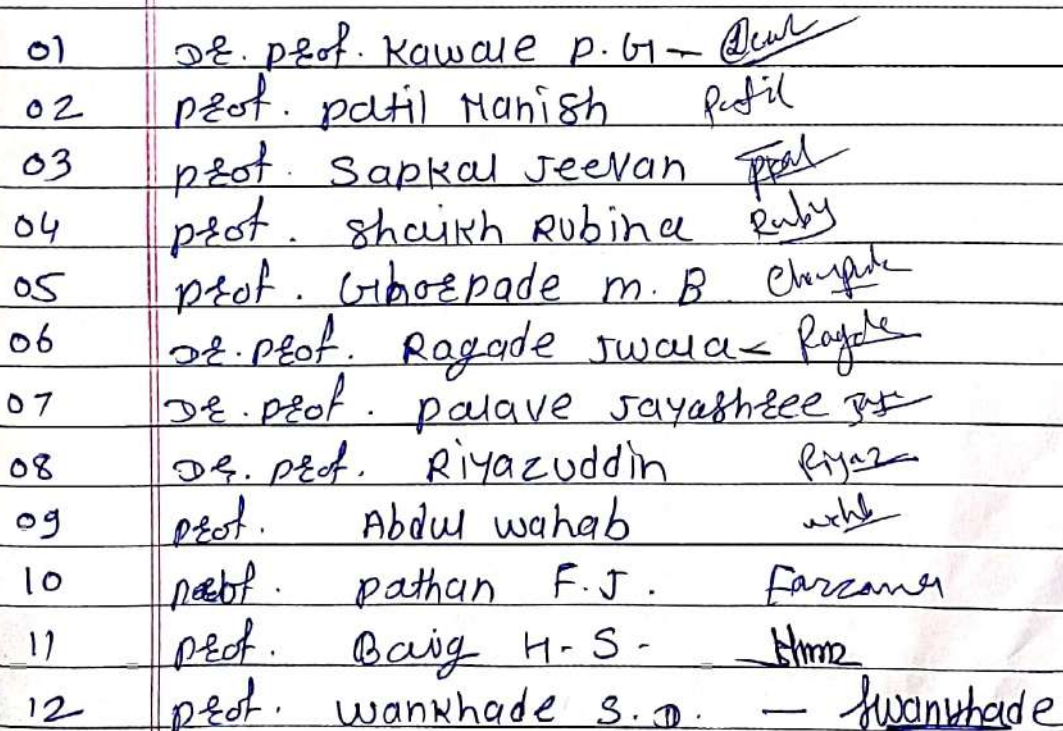 01 Dr. prof. Kawale P. G -
02 prof. patil Manish Patil
03 prof. Sapkal Jeevan
04 prof. Shaikh Rubina Ruby
05 prof. Ghorpade m. B.
06 Dr. prof. Ragade Jwala - Ragde
07 Dr. prof. palave Jayashree
08 Dr. prof. Riyazuddin Riyaz
09 prof. Abdul wahab
10 prof. pathan F. J. Farzana
11 prof. Baig H - S -
12 prof. wankhade S. D. - Swankhade